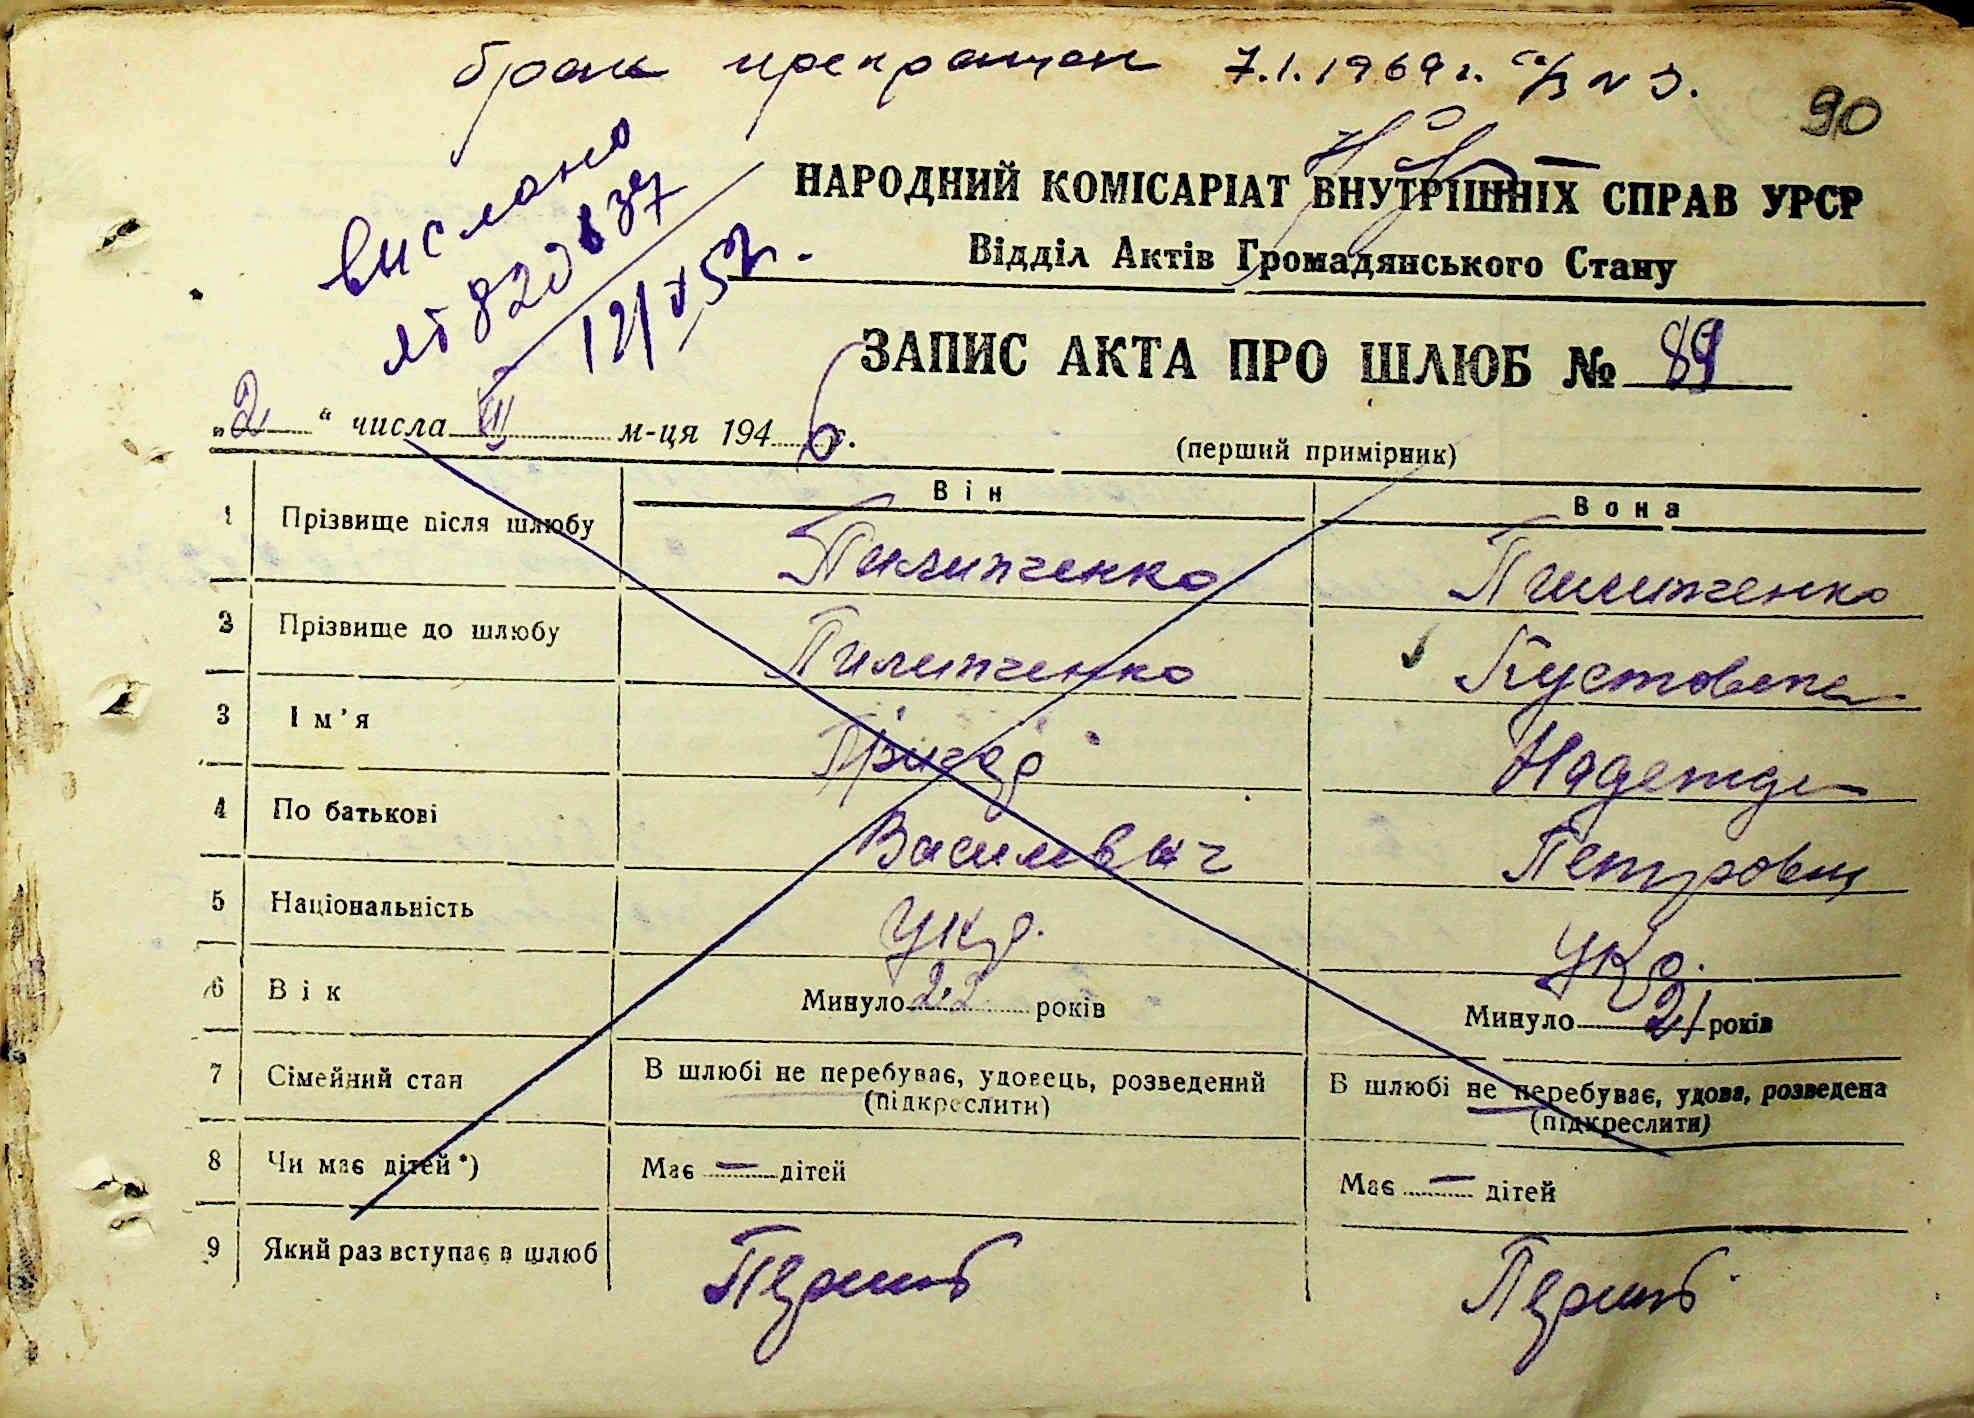 брак прекращен 7.1.1969 г. а/з N 3.
90
вислано
НАРОДНИЙ КОМІСАРІАТ ВНУТРІШНІХ СПРАВ УРСР
Відділ Актів Громадянського Стану
ЗАПИС АКТА ПРО ШЛЮБ № 89
„2“ числа III м-ця 1946 г.
(перший примірник)
Він Вона
1 Прізвище після шлюбу Пилипченко Пилипченко
2 Прізвище до шлюбу Пилипченко
3 Ім’я Надежда
4 По батькові Василевич Петровна
5 Національність Укр. Укр.
6 Вік Минуло 22 років Минуло 21 років
7 Сімейний стан В шлюбі не перебуває, удовець, розведений В шлюбі не перебуває, удова, розведена
(підкреслити) (підкреслити)
8 Чи має дітей*) Має — дітей Має — дітей
9 Який раз вступає в шлюб Перший Перший